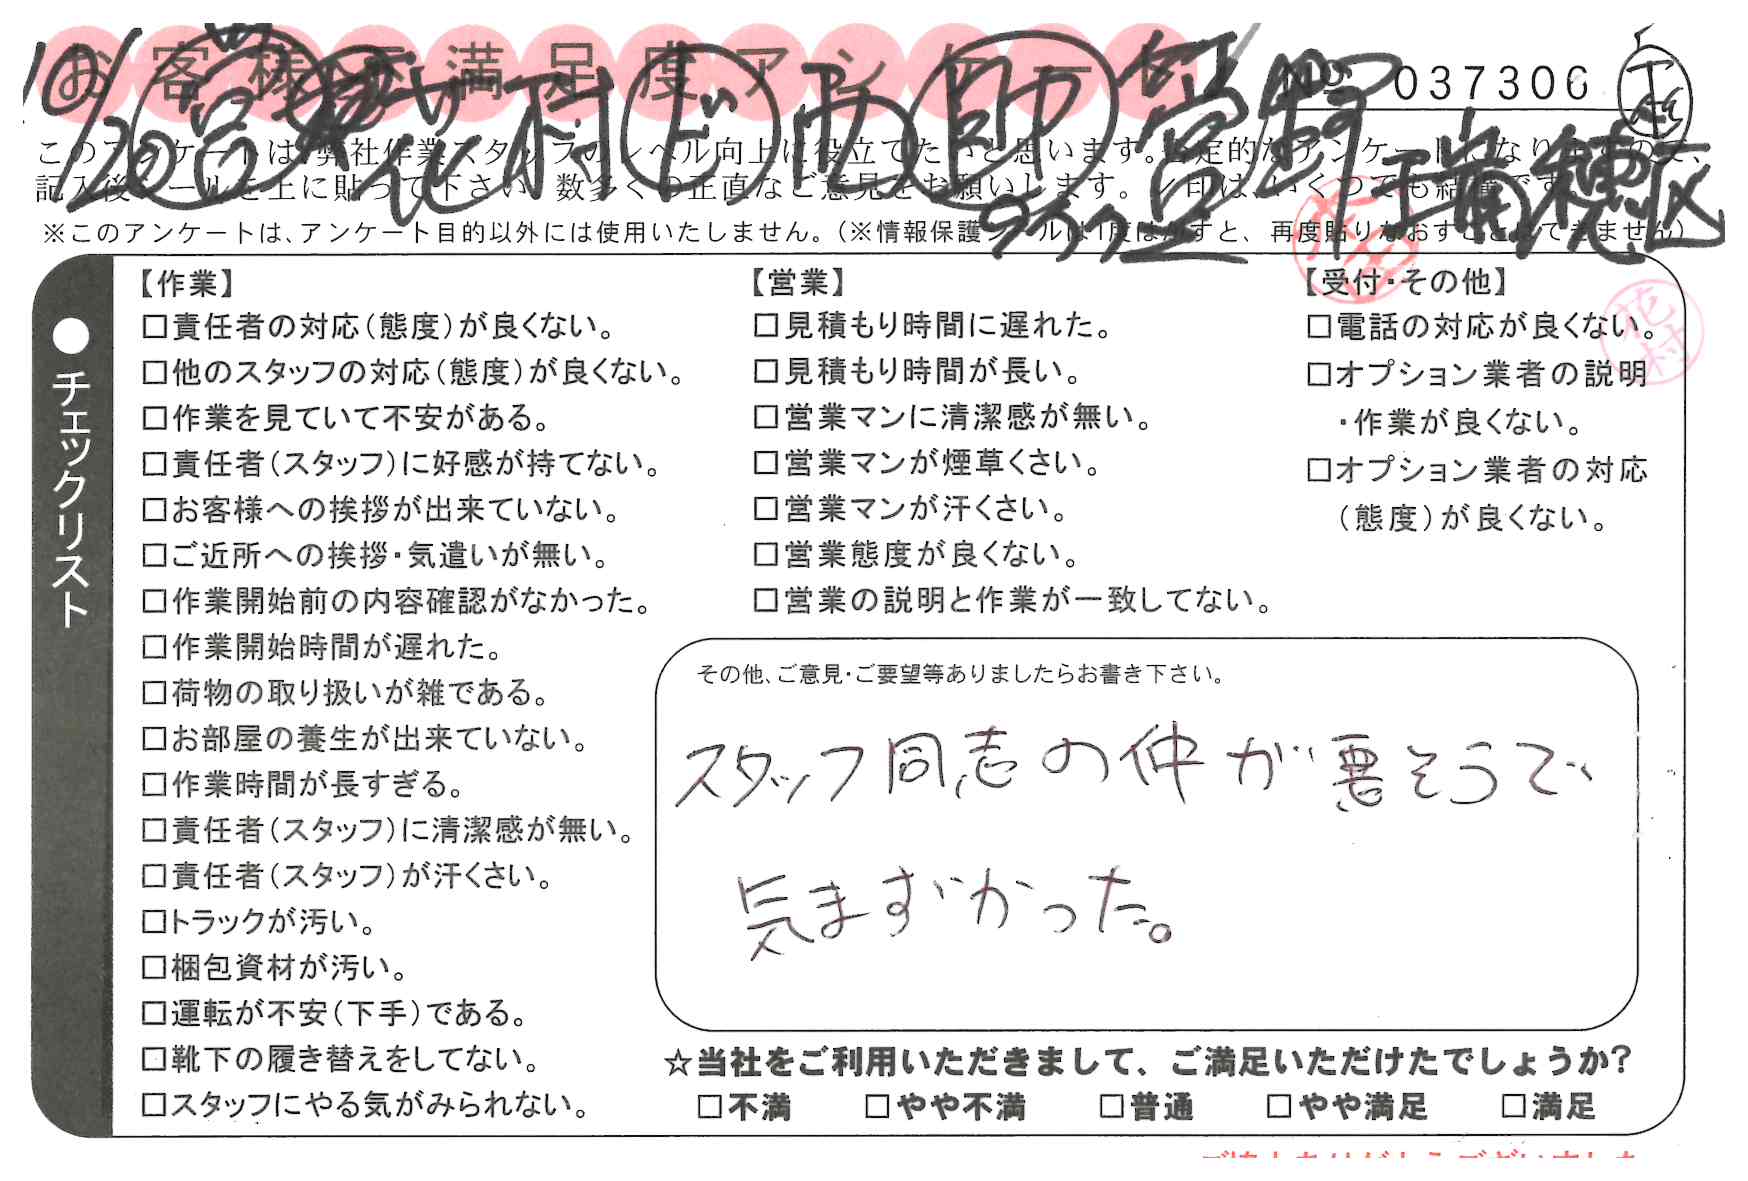 お客様不満足度アンケート
№ 037306
このアンケートは、弊社作業スタッフのレベル向上に役立てたいと思います。否定的なアンケートになりますので、
記入後シールを上に貼って下さい。数多くの正直なご意見をお願いします。レ印は、いくつでも結構です。
※このアンケートは、アンケート目的以外には使用いたしません。(※情報保護シールは1度はがすと、再度貼りなおすことはできません)
10/20 営 花村 ド 西 印 営野 瑞穂区
●チェックリスト
【作業】
□責任者の対応(態度)が良くない。
□他のスタッフの対応(態度)が良くない。
□作業を見ていて不安がある。
□責任者(スタッフ)に好感が持てない。
□お客様への挨拶が出来ていない。
□ご近所への挨拶・気遣いが無い。
□作業開始前の内容確認がなかった。
□作業開始時間が遅れた。
□荷物の取り扱いが雑である。
□お部屋の養生が出来ていない。
□作業時間が長すぎる。
□責任者(スタッフ)に清潔感が無い。
□責任者(スタッフ)が汗くさい。
□トラックが汚い。
□梱包資材が汚い。
□運転が不安(下手)である。
□靴下の履き替えをしてない。
□スタッフにやる気がみられない。
【営業】
□見積もり時間に遅れた。
□見積もり時間が長い。
□営業マンに清潔感が無い。
□営業マンが煙草くさい。
□営業マンが汗くさい。
□営業態度が良くない。
□営業の説明と作業が一致してない。
【受付・その他】
□電話の対応が良くない。
□オプション業者の説明
・作業が良くない。
□オプション業者の対応
(態度)が良くない。
花村
その他、ご意見・ご要望等ありましたらお書き下さい。
スタッフ同志の仲が悪そうで、
気まずかった。
☆当社をご利用いただきまして、ご満足いただけたでしょうか?
□不満 □やや不満 □普通 □やや満足 □満足